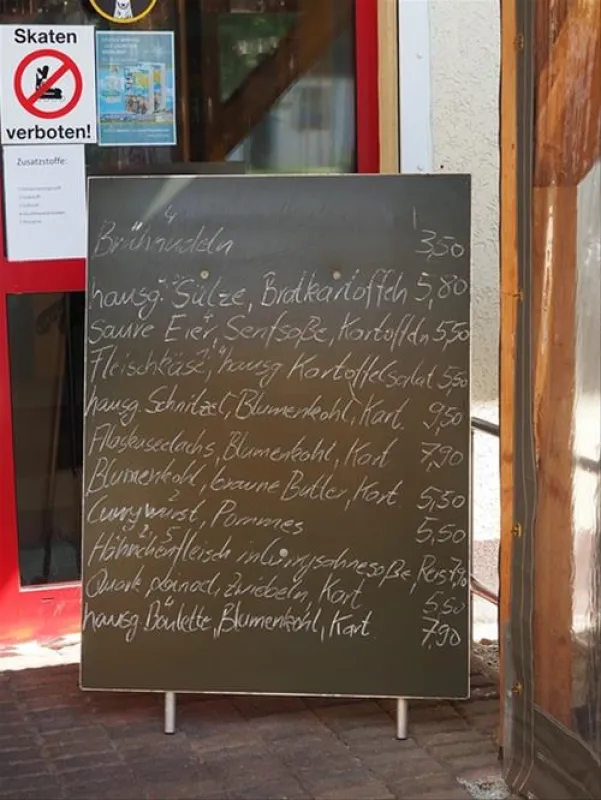 Skaten
verboten!
Zusatzstoffe:
4
Brühnudeln 3,50
hausg. Sülze, Bratkartoffeln 5,80
saure Eier, Senfsoße, Kartoffeln 5,50
Fleischkäse, hausg Kartoffelsalat 5,50
hausg. Schnitzel, Blumenkohl, Kart. 9,50
Alaskaseelachs, Blumenkohl, Kart 7,90
Blumenkohl, braune Butter, Kart. 5,50
2
Currywurst, Pommes 5,50
2, 5
Hähnchenfleisch in Currysahnesoße, Reis 7,90
Quark, Zwiebeln, Kart 5,50
hausg Boulette, Blumenkohl, Kart 7,90